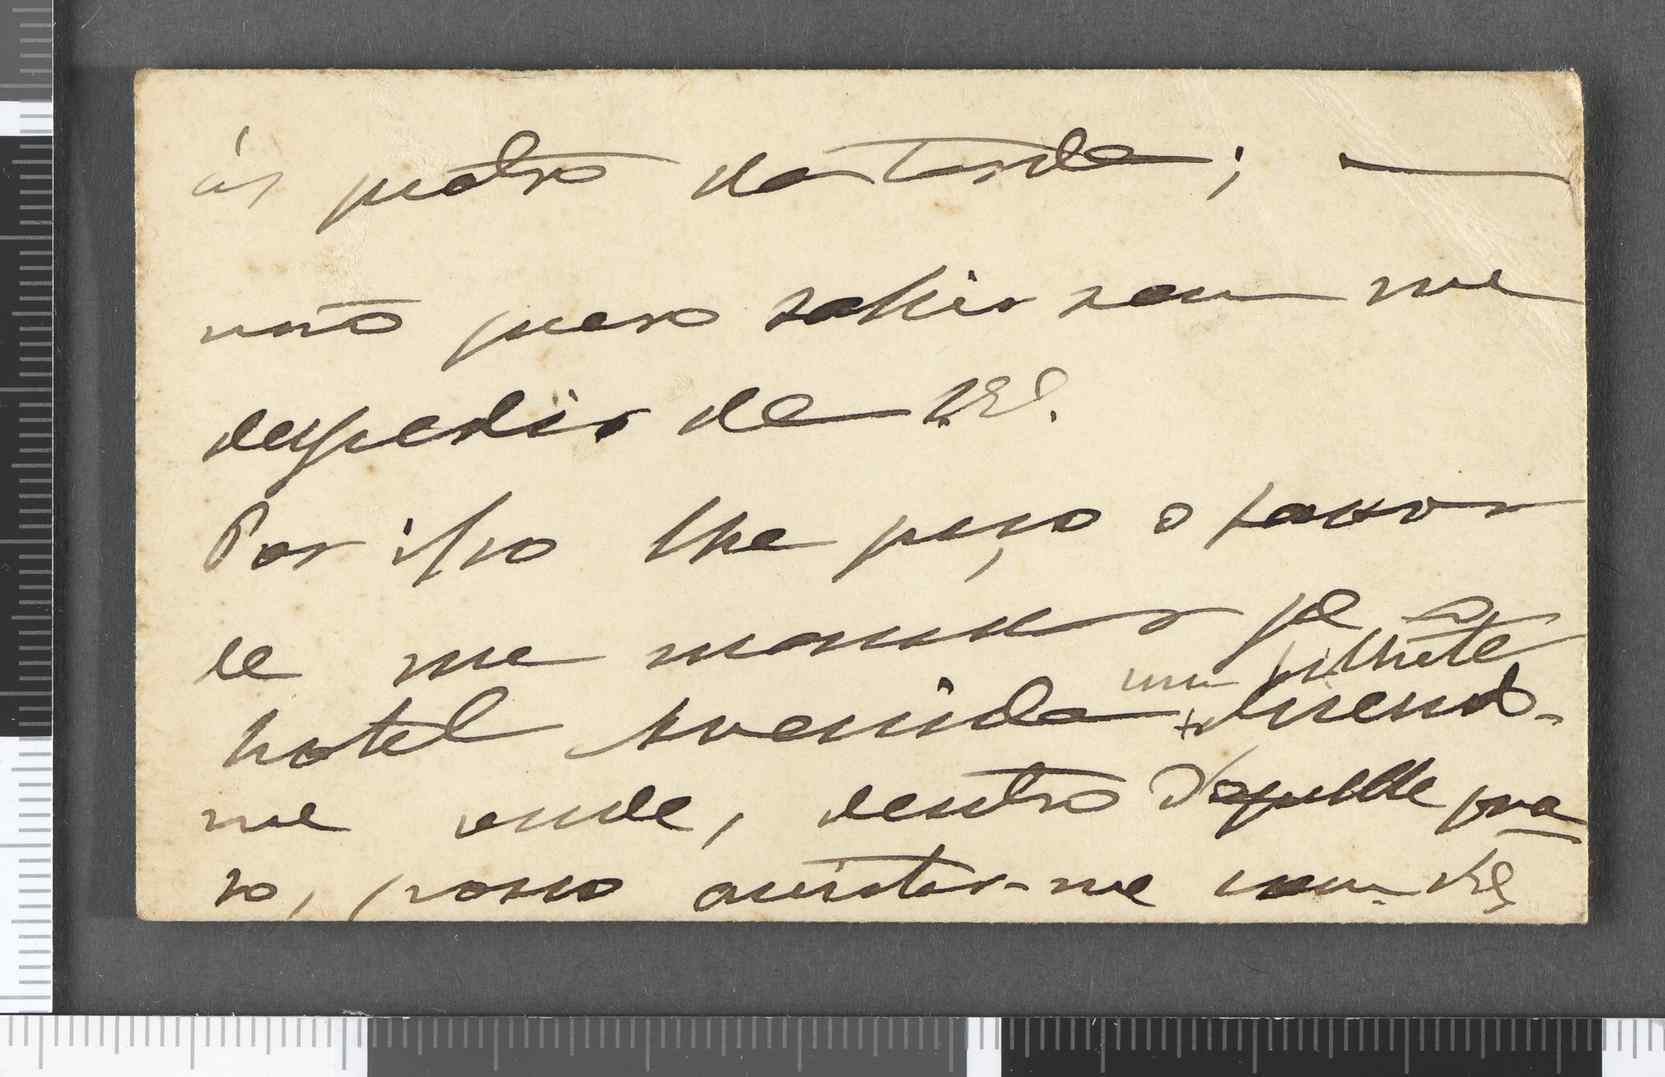 ás quatro da tarde; —
não quero sahir sem me
despedir de V. Ex.
Por isso lhe peço o favor
de me mandar pª o
um bilhete
hotel Avenida + dizendo-
me onde, dentro d'aquelle pra-
so, posso avistar-me com V. Ex.